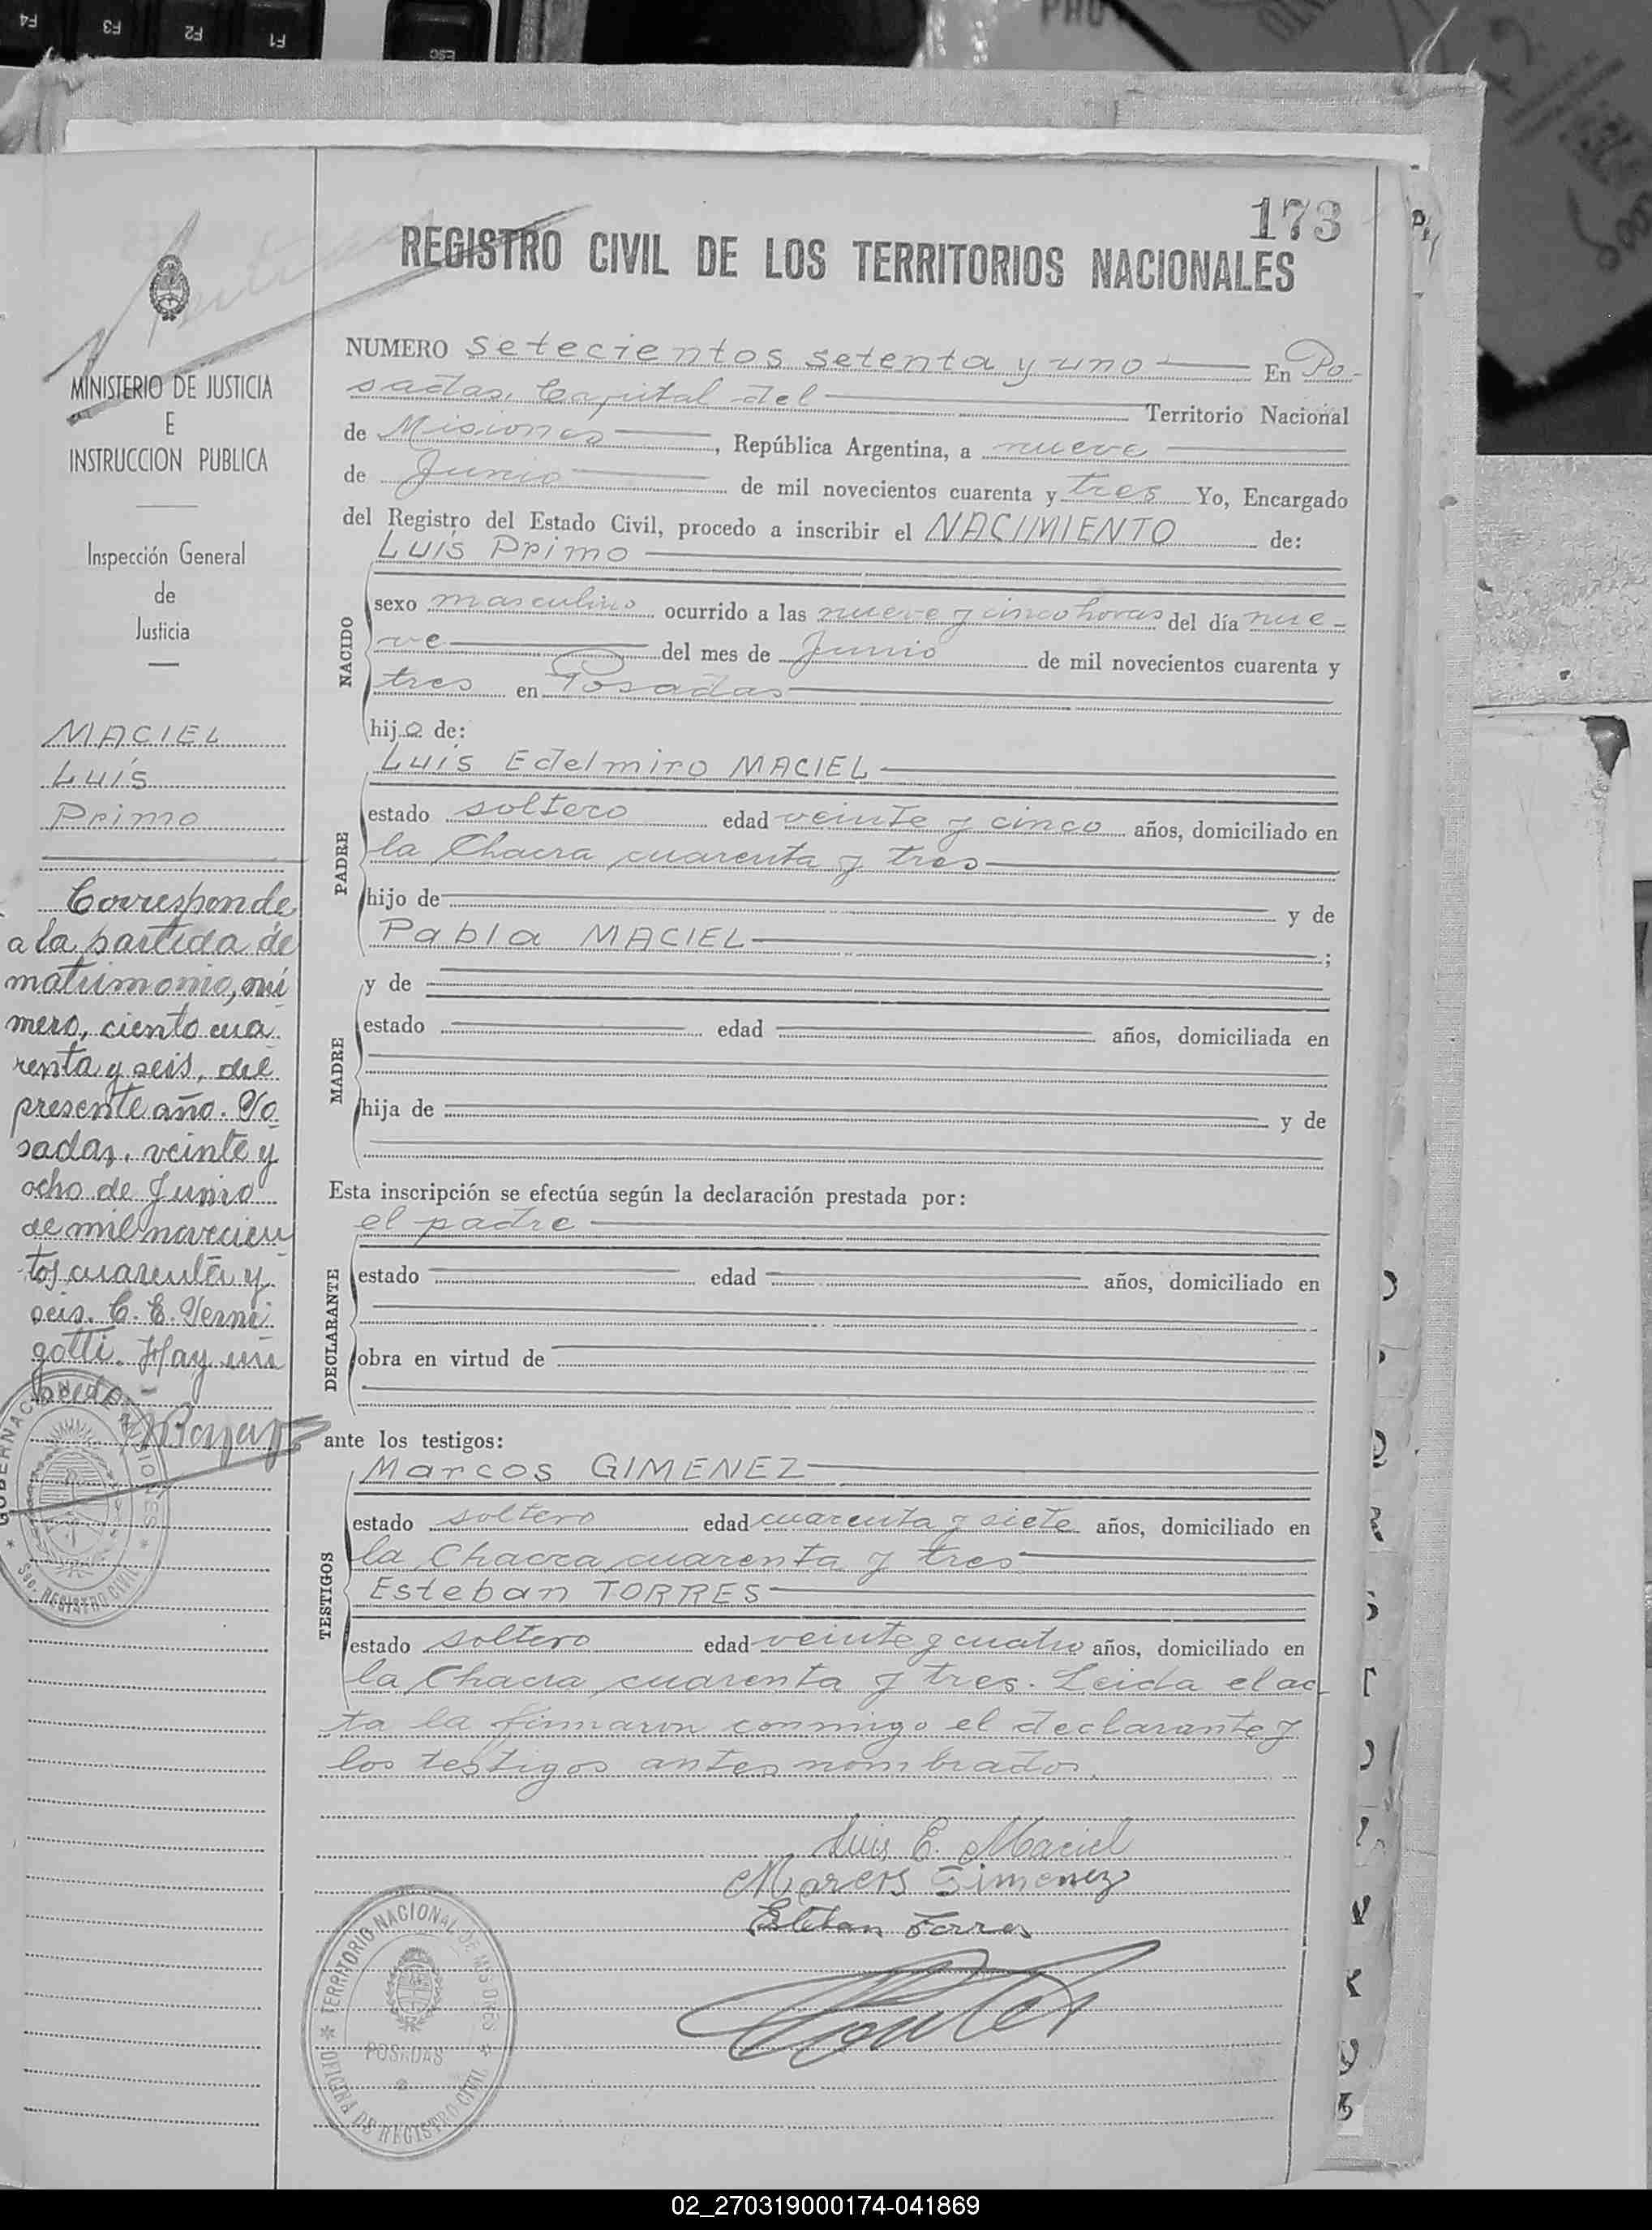 F4 F3 F2 F1 ESC
173
REGISTRO CIVIL DE LOS TERRITORIOS NACIONALES
MINISTERIO DE JUSTICIA
E
INSTRUCCION PUBLICA
Inspección General
de
Justicia
MACIEL
Luís
Primo
Corresponde
a la partida de
matrimonio, nú
mero, ciento cua
renta y seis, del
presente año. Po
sadas, veinte y
ocho de Junio
de mil novecien
tos cuarenta y
seis. C. E. Verni
gotti. Hay un
sello
NUMERO setecientos setenta y uno En Po-
sadas, Capital del Territorio Nacional
de Misiones, República Argentina, a nueve
de Junio de mil novecientos cuarenta y tres Yo, Encargado
del Registro del Estado Civil, procedo a inscribir el NACIMIENTO de:
Luís Primo
NACIDO
sexo masculino ocurrido a las nueve y cinco horas del día nue-
ve del mes de Junio de mil novecientos cuarenta y
tres en Posadas
hijo de:
Luis Edelmiro MACIEL
PADRE
estado soltero edad veinte y cinco años, domiciliado en
la Chacra cuarenta y tres
hijo de y de
Pabla MACIEL ;
MADRE
y de
estado edad años, domiciliada en
hija de y de
Esta inscripción se efectúa según la declaración prestada por:
el padre
DECLARANTE
estado edad años, domiciliado en
obra en virtud de
ante los testigos:
Marcos GIMENEZ
TESTIGOS
estado soltero edad cuarenta y siete años, domiciliado en
la Chacra cuarenta y tres
Esteban TORRES
estado soltero edad veinte y cuatro años, domiciliado en
la Chacra cuarenta y tres. Leida el ac-
ta la firmaron conmigo el declarante y
los testigos antes nombrados.
Luis E. Maciel
Marcos Gimenez
Esteban Torres
TERRITORIO NACIONAL DE MISIONES
POSADAS
OFICINA DE REGISTRO CIVIL
02_270319000174-041869